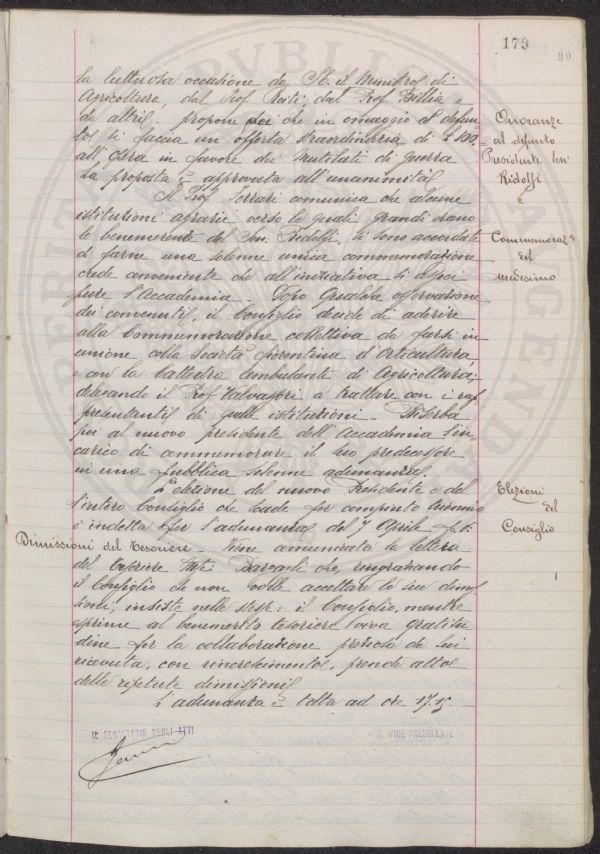 179
90
la luttuosa occasione da S.E. il Ministro di
Agricoltura, dal Prof Rosti, dal Prof Billia e
da altri. propone poi che in omaggio al defun-
to si faccia un offerta straordinaria di £ 100
all'Opera in favore dei Mutilati di Guerra
La proposta è approvata all'unanimità
Onoranze
al defunto
Presidente Sen
Ridolfi
e
Commemoraz.e
del
medesimo
Il Prof Ferrari comunica che alcune
istituzioni agrarie verso le quali grandi erano
le benemerenze del Sen. Ridolfi, si sono accordate
di farne una solenne unica commemorazione
crede conveniente che all'iniziativa si associ
pure l'Accademia. Dopo qualche osservazione
dei convenuti, il Consiglio decide di aderire
alla Commemorazione collettiva da farsi in
unione colla Società fiorentina d'Orticultura
e con la Cattedra Ambulante di Agricoltura,
delegando il Prof Valvassori a trattare con i rap
presentanti di quelle istituzioni. Riserba
poi al nuovo presidente dell'Accademia l'in
carico di commemorare il suo predecessore
in una pubblica solenne adunanza.
Elezioni
del
Consiglio
L'elezione del nuovo Presidente e del
l'intero Consiglio che scade per compiuto triennio
è indetta per l'adunanza del 7 Aprile p.v.
Dimissioni del Tesoriere - Viene comunicata la lettera
del Tesoriere Bargagli che, ringraziando
il Consiglio che non volle accettare le sue dimis
sioni, insiste nelle stesse: il Consiglio, mentre
esprime al benemerito tesoriere viva gratitu
dine per la collaborazione preziosa da lui
ricevuta, con rincrescimento, prende atto
delle ripetute dimissioni
L'adunanza è tolta ad ore 17.15
IL SEGRETARIO DEGLI ATTI
IL VICE PRESIDENTE